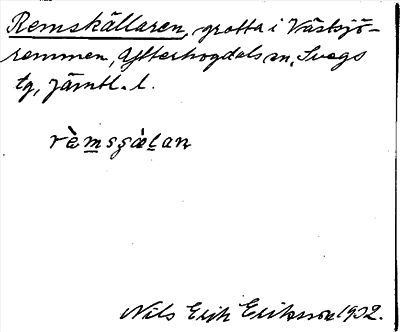 Remskällaren, grotta i Västsjö-
remmen, Ytterhogdals sn, Svegs
tg, Jämtl. l.
rèmsʂàlan
Nils Erik Eriksson 1932.